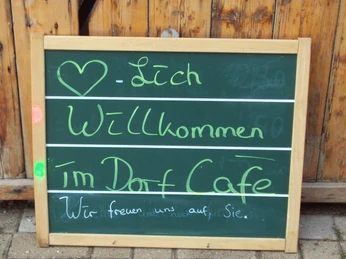 ♡-Lich
Willkommen
im Dorf Cafe
Wir freuen uns auf Sie.